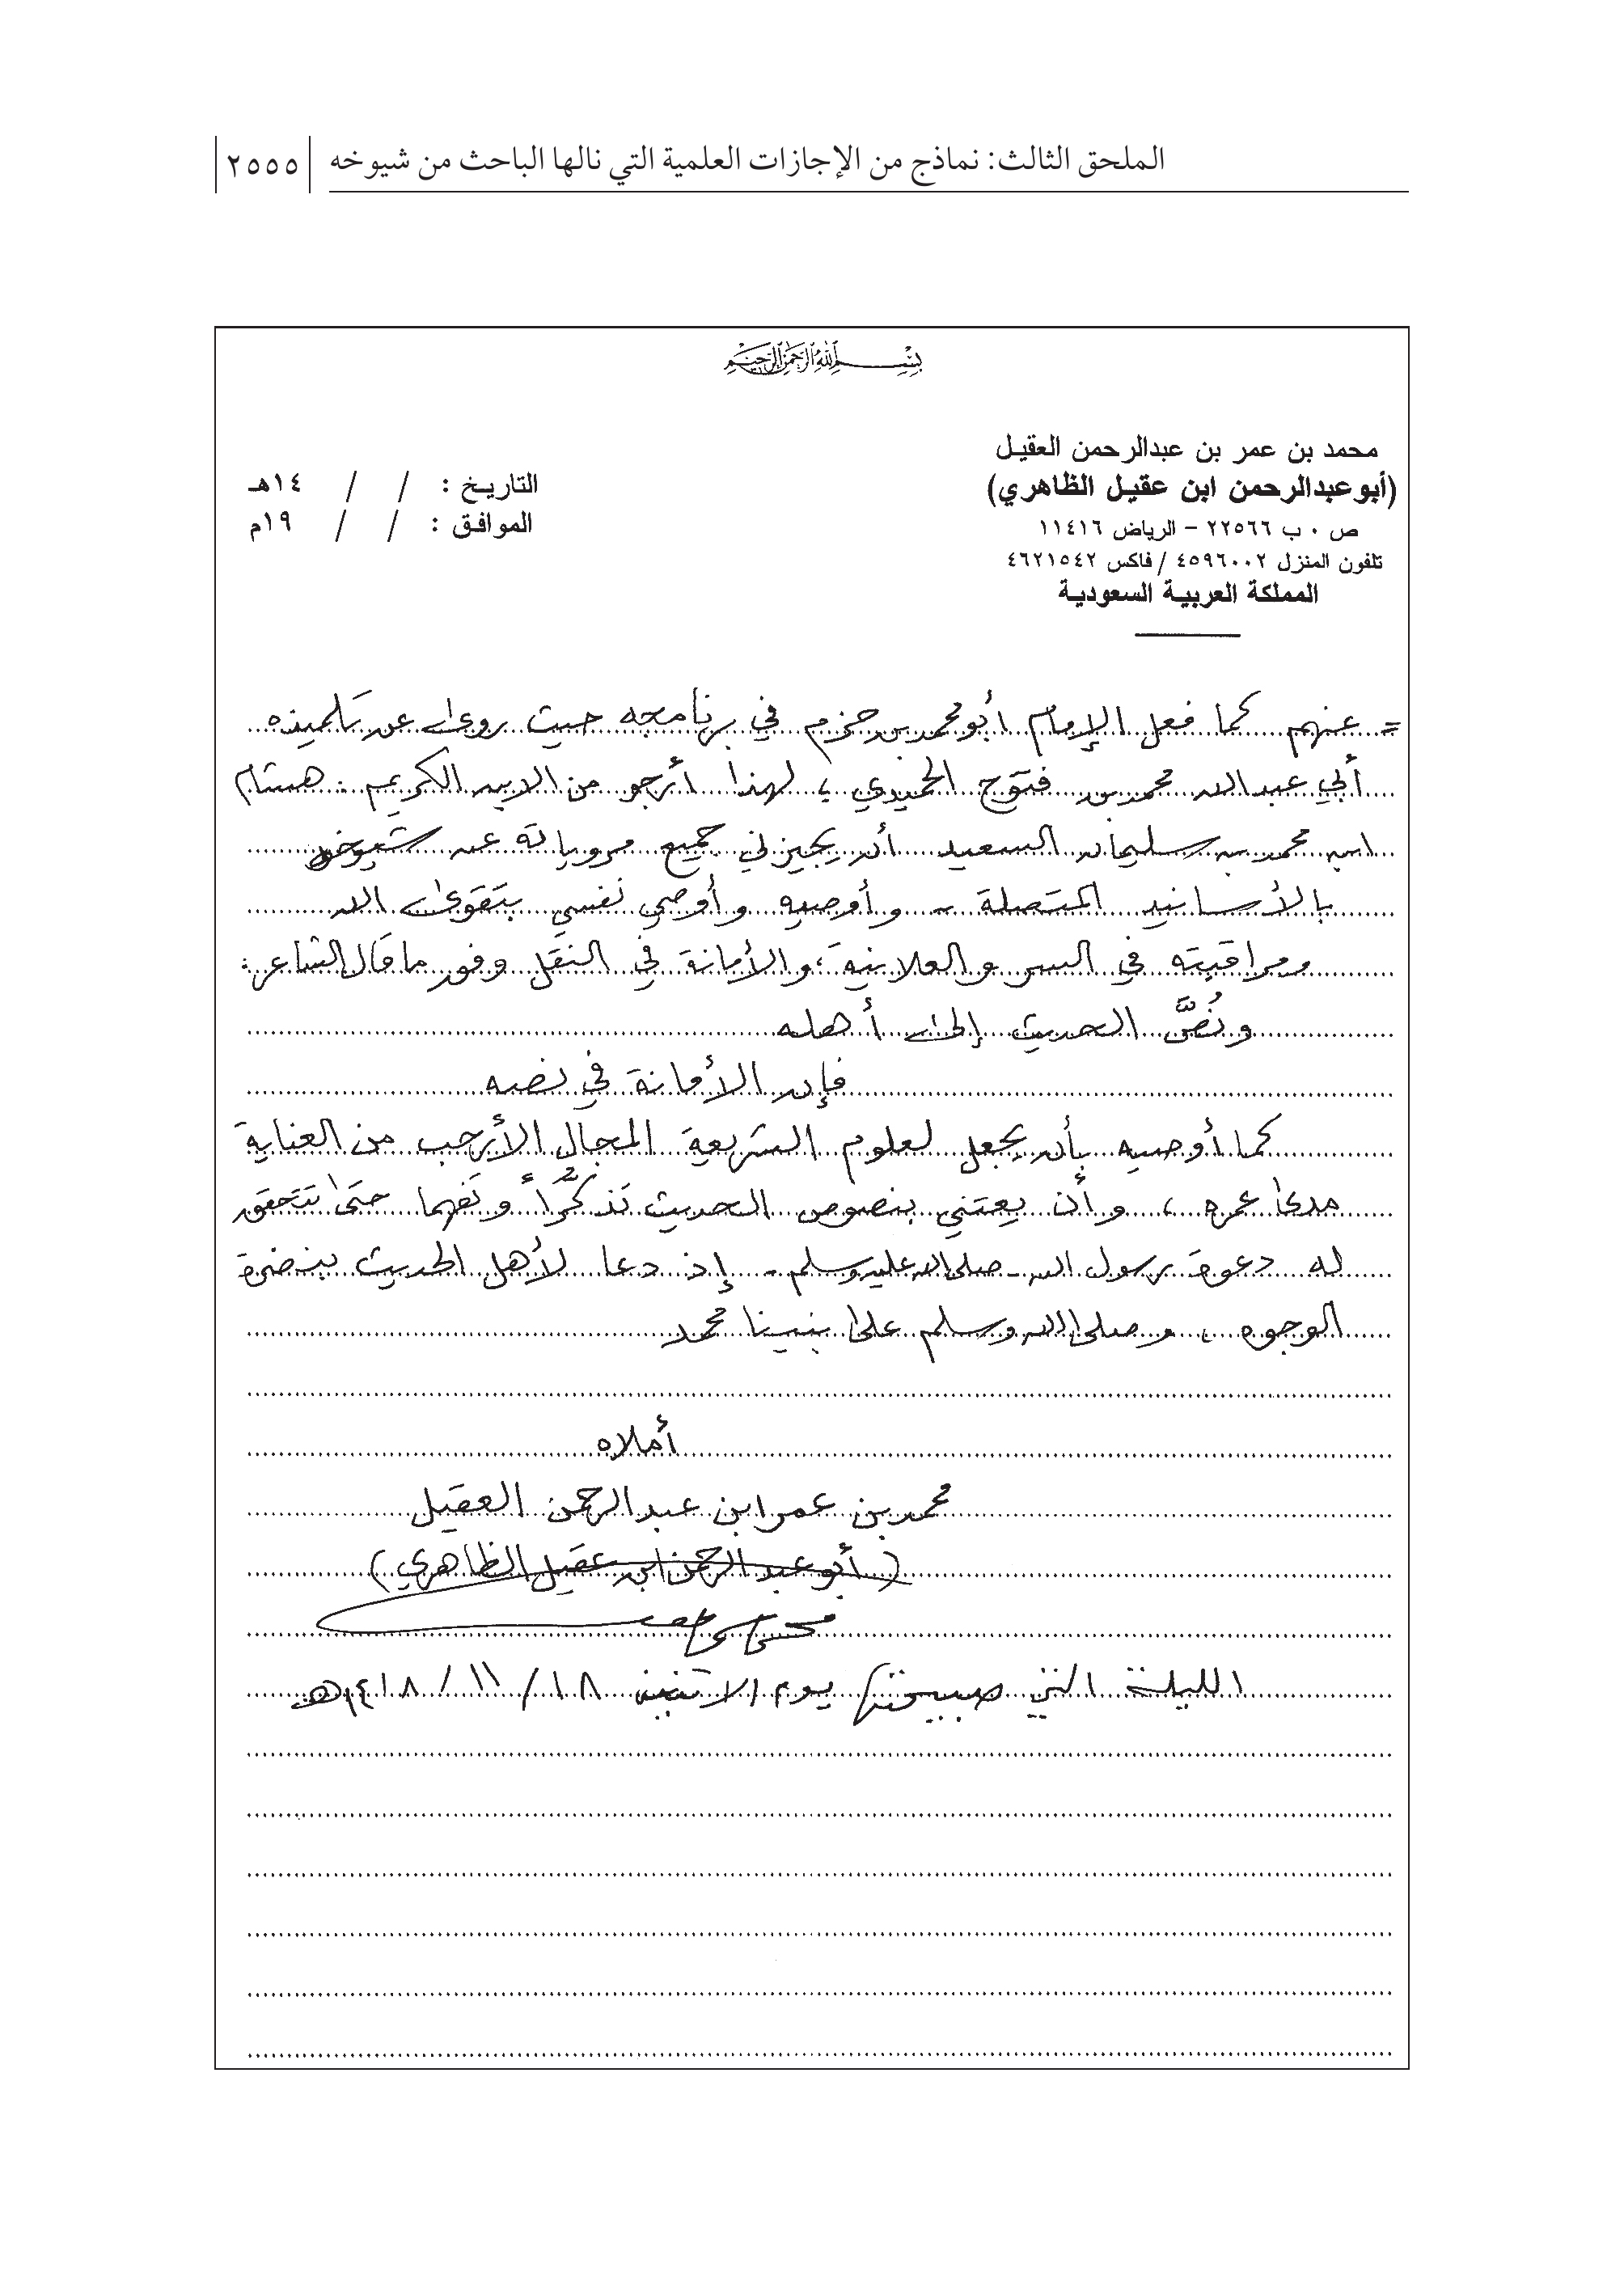 الملحق الثالث: نماذج من الإجازات العلمية التي نالها الباحث من شيوخه
٢٥٥٥
بسم الله الرحمن الرحيم
محمد بن عمر بن عبدالرحمن العقيل
(أبوعبدالرحمن ابن عقيل الظاهري)
ص ٠ ب ٢٢٥٦٦ - الرياض ١١٤١٦
تلفون المنزل ٤٥٩٦٠٠٢ / فاكس ٤٦٢١٥٤٢
المملكة العربية السعودية
التاريخ : / / ١٤هـ
الموافق : / / ١٩م
= عنهم كما فعل الإمام أبو محمد بن حزم في برنامجه حيث روى عن تلميذه
أبي عبدالله محمد بن فتوح الحميدي ؛ لهذا أرجو من الابن الكريم : هشام
ابن محمد بن سليمان السعيد أن يجيزني جميع مروياته عن شيوخه
بالأسانيد المتصلة - وأوصيه وأوصي نفسي بتقوى الله
ومراقبته في السر والعلانية ، والأمانة في النقل وفور ما قال الشاعر :
ونُصَّ الحديث إلى أهله
فإن الأمانة في نصه
كما أوصيه بأن يجعل لعلوم الشريعة المجال الأرحب من العناية
مدى عمره ، وأن يعتني بنصوص الحديث تذكُّراً وتفهما حتى تتحقق
له دعوة رسول الله - صلى الله عليه وسلم - إذ دعا لأهل الحديث بنضرة
الوجوه ، وصلى الله وسلم على نبينا محمد
أملاه
محمد بن عمر ابن عبدالرحمن العقيل
(أبو عبدالرحمن ابن عقيل الظاهري)
الليلة التي صبيحتها يوم الاثنين ١٨ / ١١ / ١٤١٨هـ